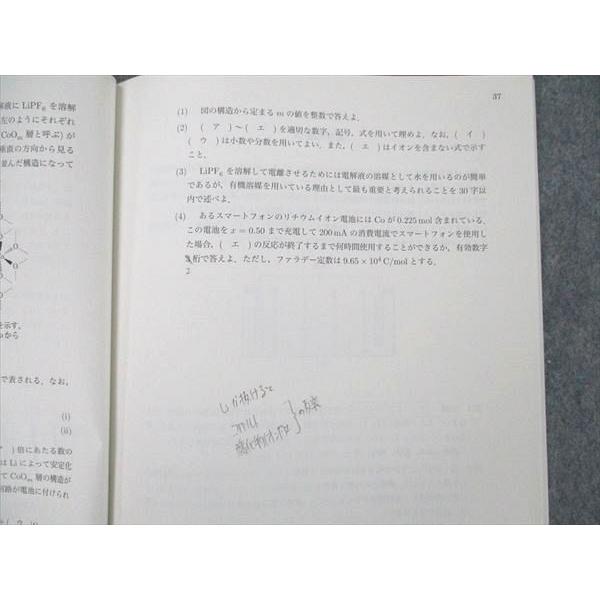 解液に LiPF₆ を溶解
左のようにそれぞれ
CoOₘ 層と呼ぶ）が
垂直の方向から見る
並んだ構造になって
を示す．
から
で表される．なお，
(i)
(ii)
ア ）倍にあたる数の
は Li によって安定化
て CoOₘ 層の構造が
回路が電池に付けられ
37
(1) 図の構造から定まる m の値を整数で答えよ．
(2) （ ア ）～（ エ ）を適切な数字，記号，式を用いて埋めよ．なお，（ イ ）
（ ウ ）は小数や分数を用いてよい．また，（ エ ）はイオンを含まない式で示す
こと．
(3) LiPF₆ を溶解して電離させるためには電解液の溶媒として水を用いるのが簡単
であるが，有機溶媒を用いている理由として最も重要と考えられることを 30 字以
内で述べよ．
(4) あるスマートフォンのリチウムイオン電池には Co が 0.225 mol 含まれている．
この電池を x = 0.50 まで充電して 200 mA の消費電流でスマートフォンを使用し
た場合，（ エ ）の反応が終了するまで何時間使用することができるか，有効数字
桁で答えよ．ただし，ファラデー定数は 9.65 × 10⁴ C/mol とする．
2
Liが抜けると
コバルト
の反発